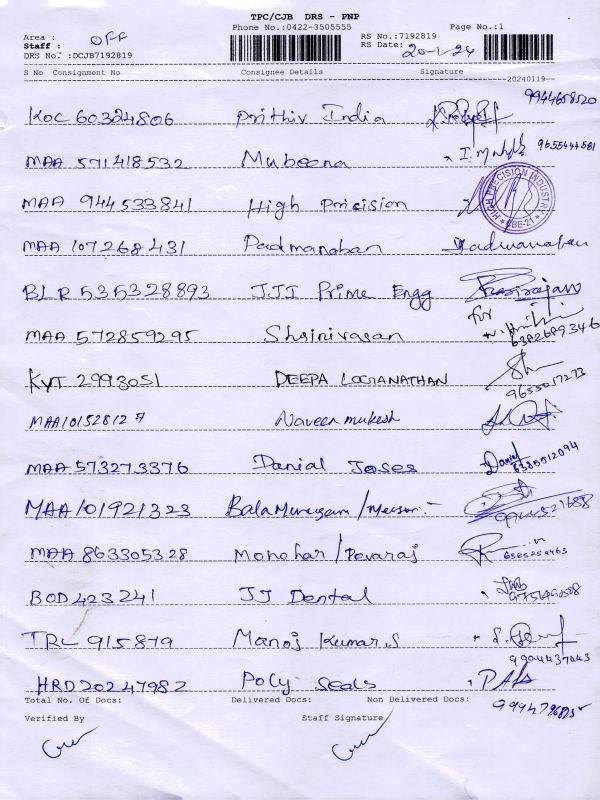 TPC/CJB DRS - PNP
Phone No.:0422-3505555 Page No.:1
Area : OFF RS No.:7192819
Staff : RS Date: 20-1-24
DRS No. :DCJB7192819
S No Consignment No Consignee Details Signature
20240119
KOC 60324806 Prithiv India 9944658520
MAA 571418532 Mubeena 9655444581
MAA 944533841 High Pricision HIGH PRECISION INDUSTRI CBE-21
MAA 107268431 Padmanaban Padmanaban
BLR 535328893 JJI Prime Engg
MAA 572859295 Shrinivasan for 6382689346
KYT 2993051 DEEPA LOGANATHAN 9655057273
MAA101528127 Naveen mukesh
MAA 573273376 Danial Joses Daniel 6385512094
MAA 101921323 BalaMurugam
MAA 863305328 Manohar/Devaraj
BOD 423241 JJ Dental
TRL 915879 Manoj Kumar.S
9994437443
HRD 20247982 Poly Seals
Total No. Of Docs: Delivered Docs: Non Delivered Docs:
Verified By Staff Signature